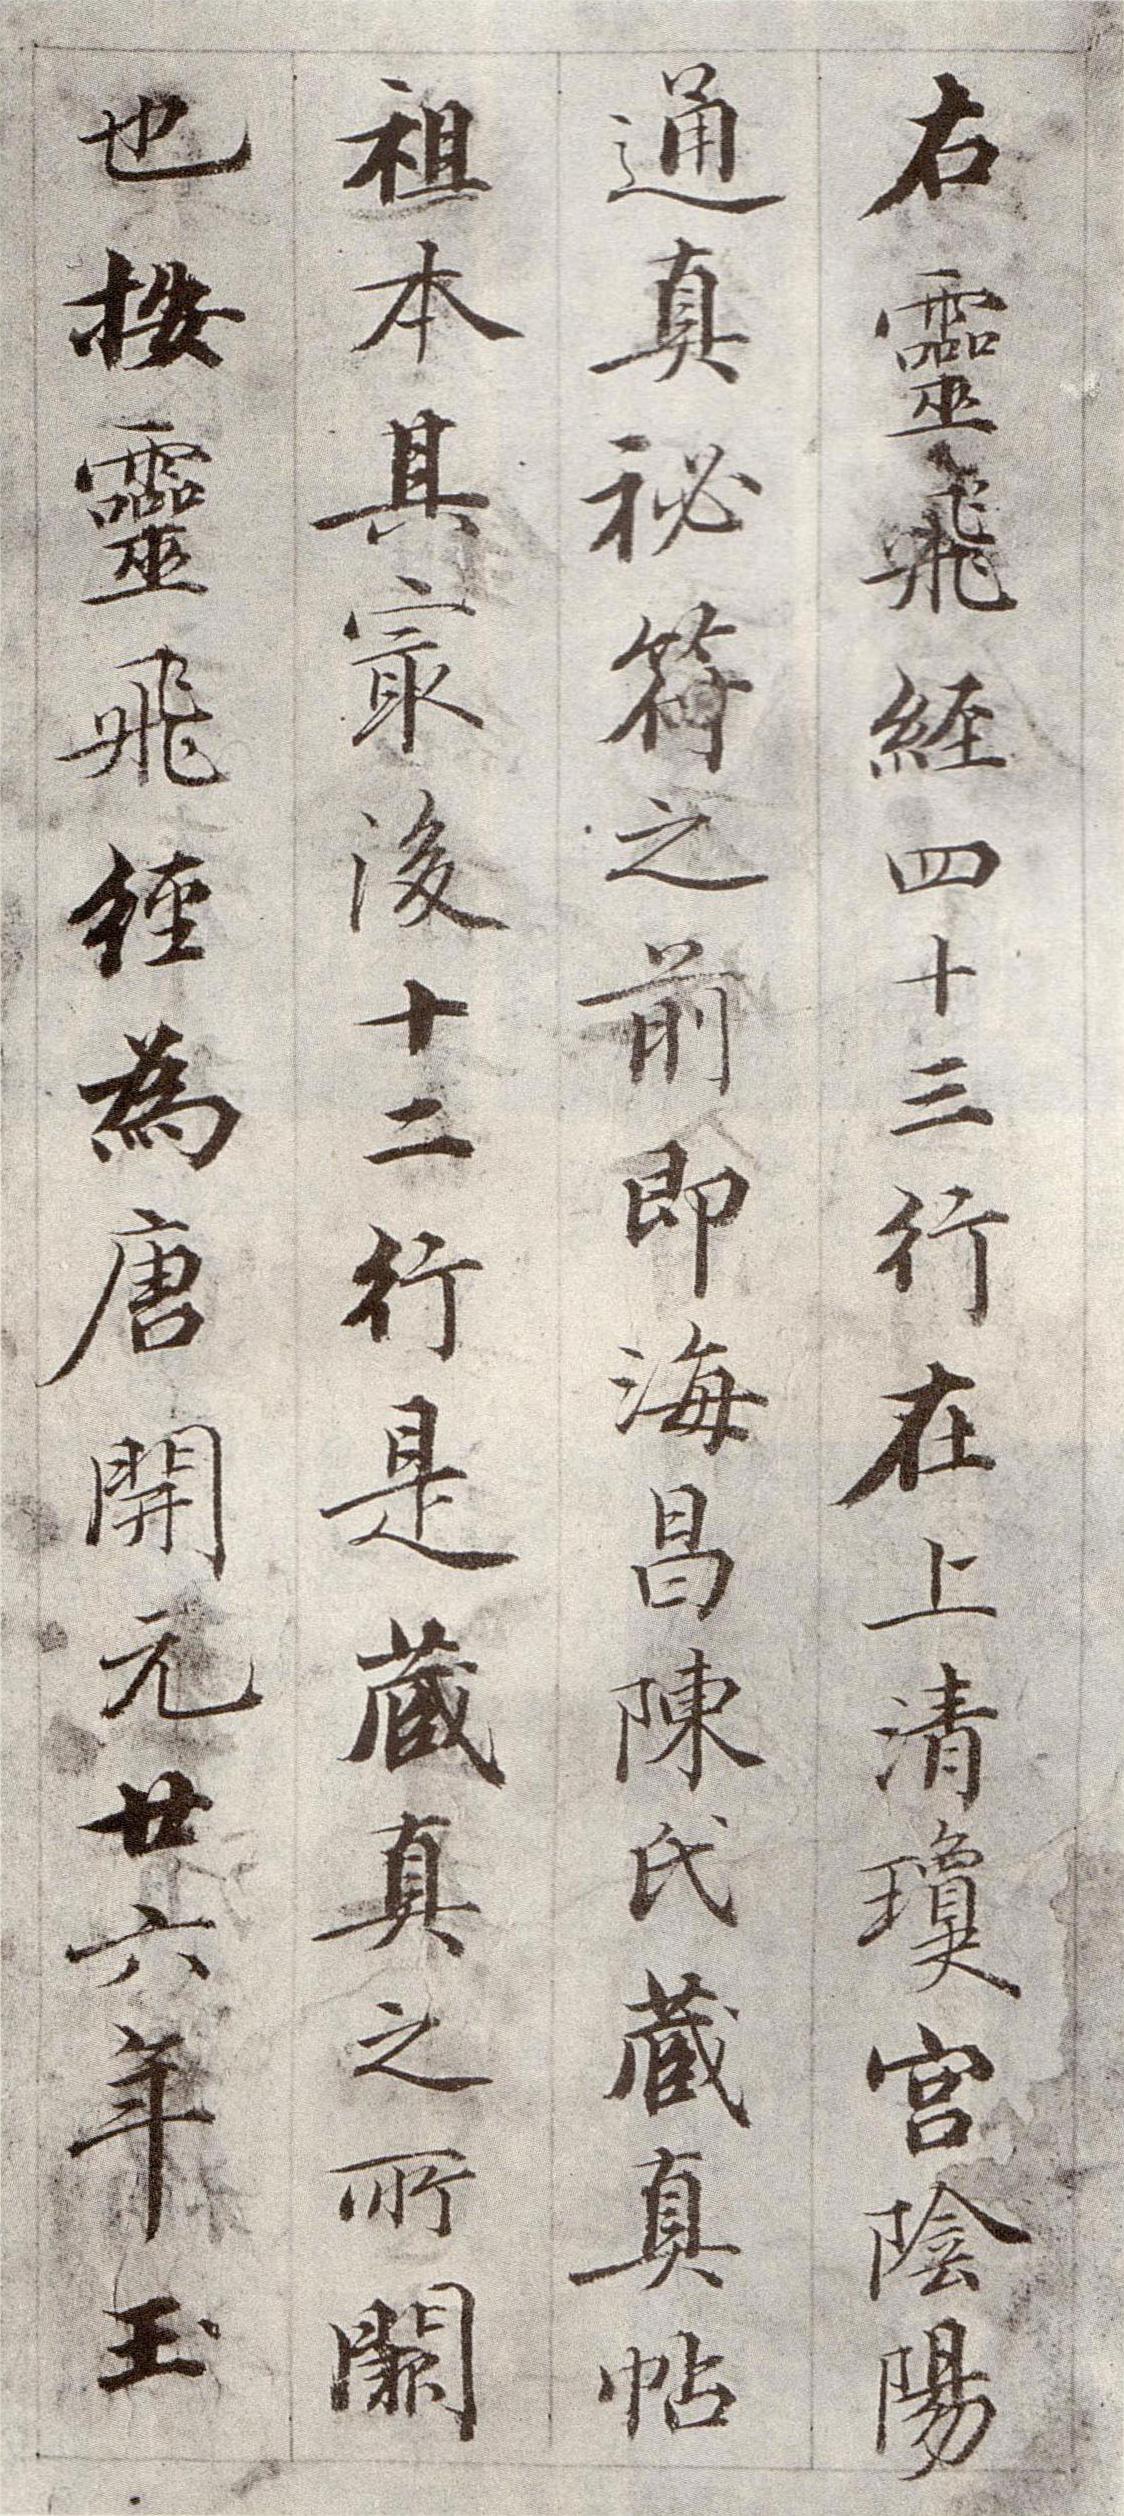 右靈飛經四十三行在上清瓊宮陰陽
通真祕符之前即海昌陳氏藏真帖
祖本其㝡後十二行是藏真之所闕
也按靈飛經為唐開元廿六年玉